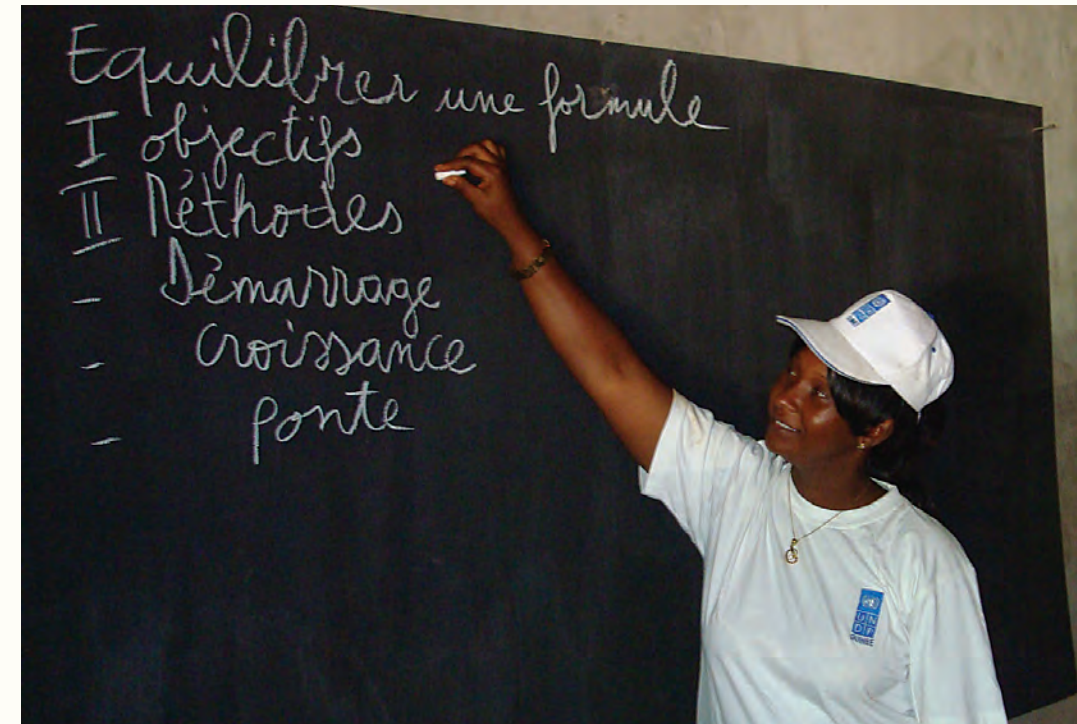 Equilibrer une formule
I objectifs
II Méthodes
- Démarrage
- croissance
- ponte
UN
DP